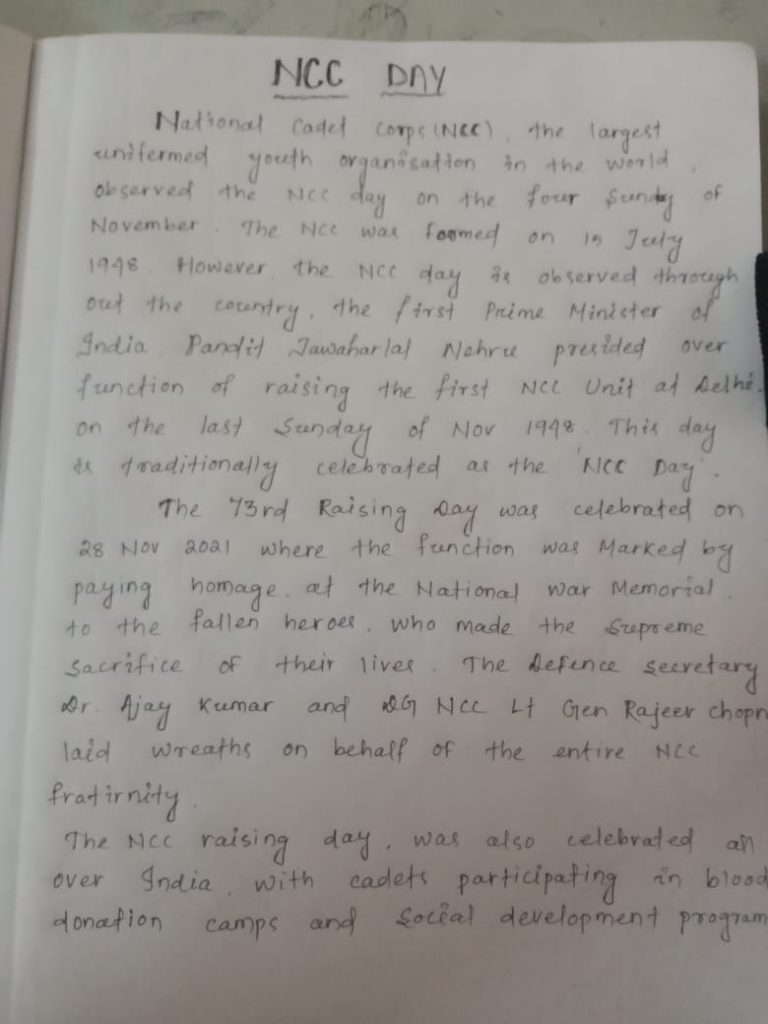 NCC DAY
National Cadet Corps (NCC), the largest
unifermed youth organisation in the world,
observed the NCC day on the four Sunday of
November. The NCC was foomed on 15 July
1948. However, the NCC day is observed through
out the country, the first Prime Minister of
India Pandit Jawaharlal Nehru presided over
function of raising the first NCC Unit at Delhi.
on the last Sunday of Nov 1948. This day
is traditionally celebrated as the 'NCC Day'.
The 73rd Raising Day was celebrated on
28 Nov 2021 where the function was Marked by
paying homage, at the National War Memorial.
to the fallen heroes, who made the Supreme
Sacrifice of their lives. The Defence secretary
Dr. Ajay Kumar and DG NCC Lt Gen Rajeev chopr
laid wreaths on behalf of the entire NCC
fratirnity.
The NCC raising day, was also celebrated all
over India, with cadets participating in blood
donation camps and Social development program